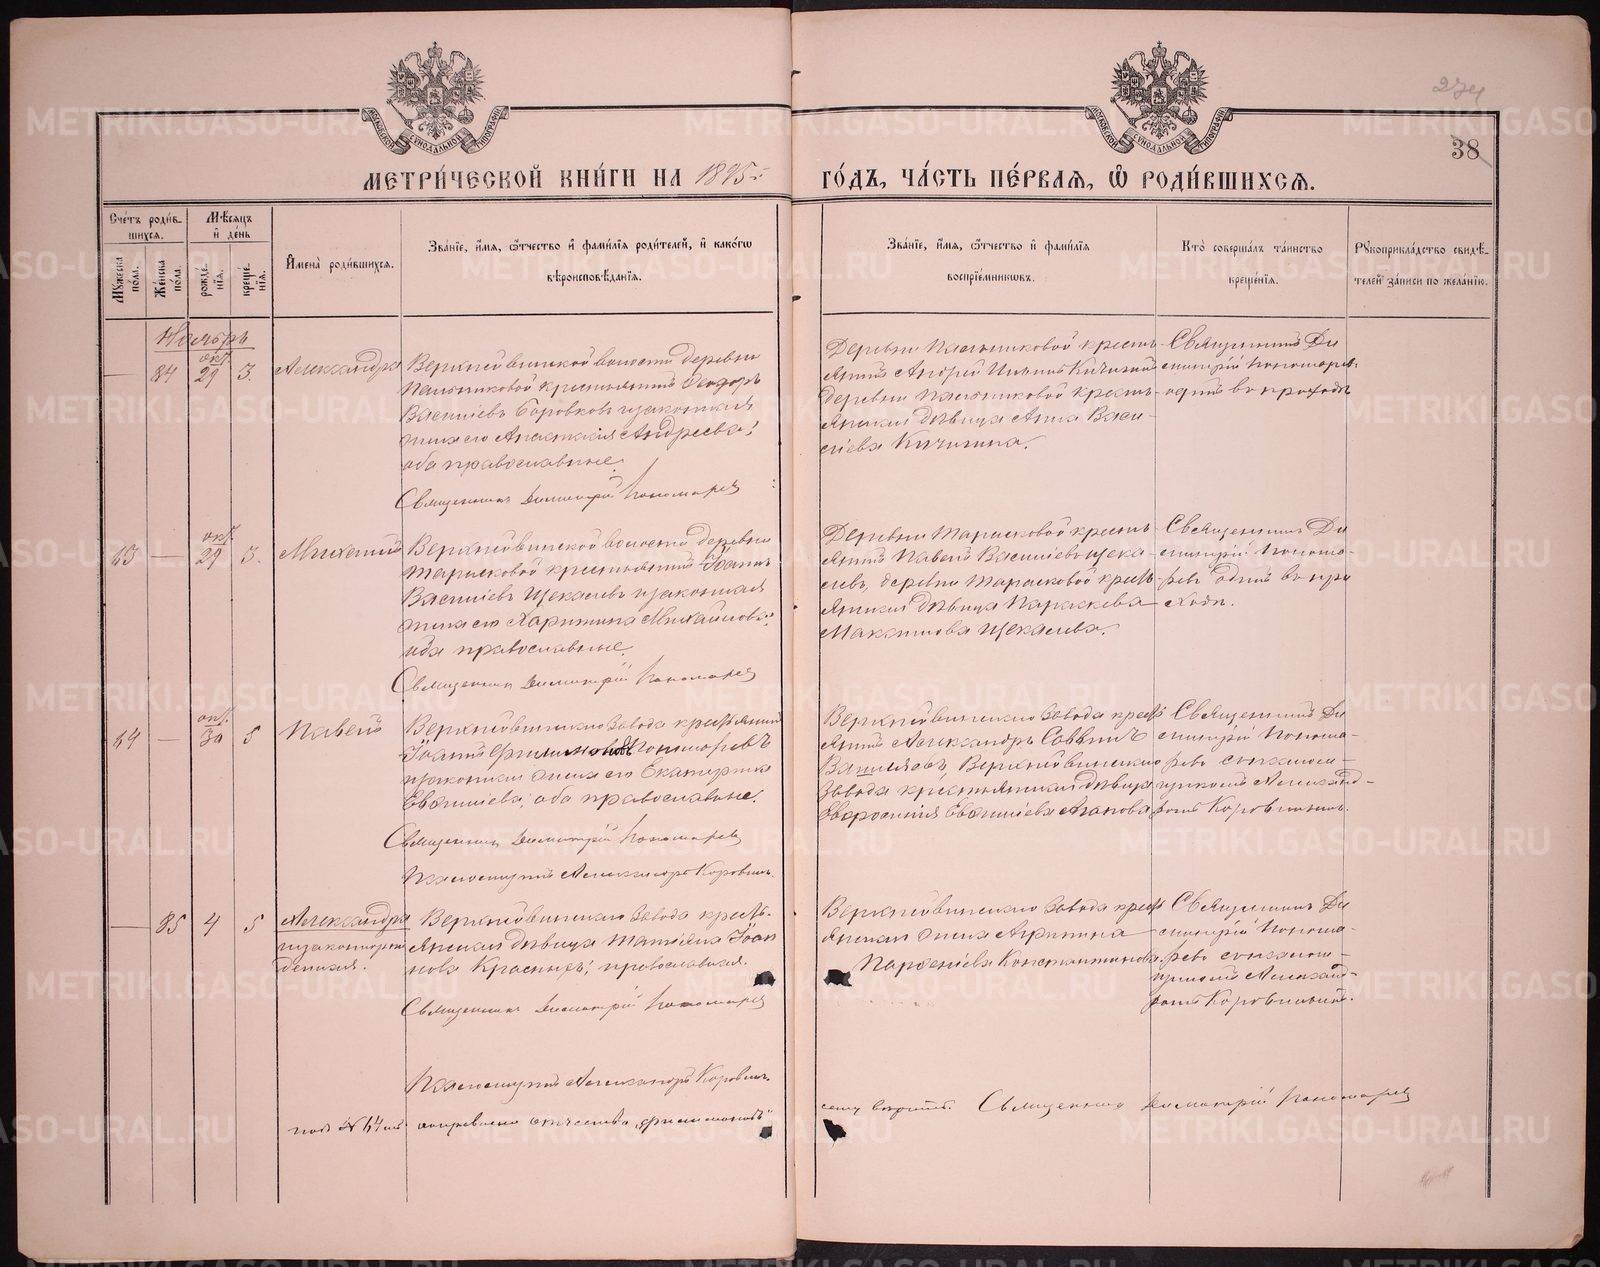 274
38
МЕТРИ́ЧЕСКОЙ КНИ́ГИ НА 1895 г.
ГО́ДЪ, ЧА́СТЬ ПЕ́РВАѦ, Ѽ РОДИ́ВШИХСѦ.
Сче́тъ роди́в-
шихсѧ.
Мꙋжеска по́ла.
Же́нска по́ла.
Мѣ́сѧцъ и де́нь
рожде́-нїѧ.
креще́-нїѧ.
Имена̀ роди́вшихсѧ.
Зва́нїе, и́мѧ, ѻ҆́тчество и фами́лїѧ роди́телей, и како́гѡ
вѣроисповѣ́данїѧ.
Зва́нїе, и́мѧ, ѻ҆́тчество и фами́лїѧ
воспрїе́мникѡвъ.
Кто̀ соверша́лъ та́инство
креще́нїѧ.
Рꙋкоприкла́дство свидѣ́-
телей за́писи по жела́нїю.
Ноябрь
окт.
84 29 3. Александра
Верхнейвинской волости деревни
крестьянинъ Ѳеодоръ
Васильевъ Боровковъ и законная
жена его Анастасія Андреева;
оба православные.
Священникъ Димитрій Пономаревъ
Деревни крестьянинъ Андрей
деревни крестьянская дѣвица Анна Васи-
льева
Священникъ Ди-
митрій Пономаревъ
одинъ въ приходѣ
окт.
63 — 29 3. Михаилъ
Верхнейвинской волости деревни
Тарасковой крестьянинъ Іоаннъ
Васильевъ Щекалевъ и законная
жена его Харитина Михайлова;
оба православные.
Священникъ Димитрій Пономаревъ
Деревни Тарасковой крестья-
нинъ Павелъ Васильевъ Щека-
левъ, деревни Тарасковой кресть-
янская дѣвица Параскева
Максимова Щекалева.
Священникъ Ди-
митрій Понома-
ревъ одинъ въ при-
ходѣ.
окт.
64 — 30 5 Павелъ
Верхнейвинскаго завода крестьянинъ
Іоаннъ Филимоновъ Пономаревъ
и законная жена его Екатерина
Евѳиміева; оба православные.
Священникъ Димитрій Пономаревъ
Псаломщикъ Александръ Коровинъ.
Верхнейвинскаго завода кресть-
янинъ Александръ Саввинъ
Верхнейвинскаго
завода крестьянская дѣвица
Евфросинія Евѳиміева Агапова
Священникъ Ди-
митрій Понома-
ревъ съ псалом-
щикомъ Александ-
ромъ Коровинымъ.
— 85 4 5 Александра
незаконнорож-
денная.
Верхнейвинскаго завода кресть-
янская дѣвица Татіана Іоан-
нова Красныхъ; православная.
Священникъ Димитрій Пономаревъ
Верхнейвинскаго завода кресть-
янская жена Агрипина
Парѳеніева Константинова
Священникъ Ди-
митрій Понома-
ревъ съ псалом-
щикомъ Александ-
ромъ Коровинымъ.
Псаломщикъ Александръ Коровинъ.
подъ № 64 отчество „Филимоновъ“
сему вѣрить. Священникъ Димитрій Пономаревъ
METRIKI.GASO-URAL.RU